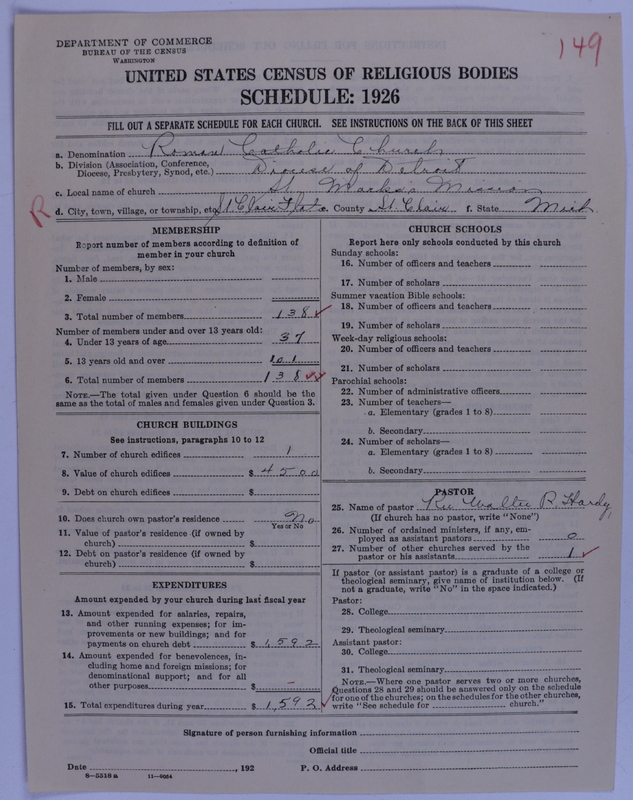 DEPARTMENT OF COMMERCE
BUREAU OF THE CENSUS
WASHINGTON
149
UNITED STATES CENSUS OF RELIGIOUS BODIES
SCHEDULE: 1926
FILL OUT A SEPARATE SCHEDULE FOR EACH CHURCH. SEE INSTRUCTIONS ON THE BACK OF THIS SHEET
a. Denomination Roman Catholic Church
b. Division (Association, Conference, Diocese, Presbytery, Synod, etc.) Diocese of Detroit
c. Local name of church St. Marks's Mission
R
d. City, town, village, or township, etc. St. Clair Flats e. County St. Clair f. State Mich
MEMBERSHIP
Report number of members according to definition of
member in your church
Number of members, by sex:
1. Male
2. Female
3. Total number of members 138
Number of members under and over 13 years old:
4. Under 13 years of age 37
5. 13 years old and over 101
6. Total number of members 138
NOTE.—The total given under Question 6 should be
same as the total of males and females given under Question 3.
CHURCH BUILDINGS
See instructions, paragraphs 10 to 12
7. Number of church edifices 1
8. Value of church edifices $ 4500
9. Debt on church edifices $
10. Does church own pastor's residence No
Yes or No
11. Value of pastor's residence (if owned by
church) $
12. Debt on pastor's residence (if owned by
church) $
EXPENDITURES
Amount expended by your church during last fiscal year
13. Amount expended for salaries, repairs,
and other running expenses; for im-
provements or new buildings; and for
payments on church debt $ 1,592
14. Amount expended for benevolences, in-
cluding home and foreign missions; for
denominational support; and for all
other purposes $ –
15. Total expenditures during year $ 1,592
CHURCH SCHOOLS
Report here only schools conducted by this church
Sunday schools:
16. Number of officers and teachers
17. Number of scholars
Summer vacation Bible schools:
18. Number of officers and teachers
19. Number of scholars
Week-day religious schools:
20. Number of officers and teachers
21. Number of scholars
Parochial schools:
22. Number of administrative officers
23. Number of teachers—
a. Elementary (grades 1 to 8)
b. Secondary
24. Number of scholars—
a. Elementary (grades 1 to 8)
b. Secondary
PASTOR
25. Name of pastor Rev Walter R. Hardy
(If church has no pastor, write "None")
26. Number of ordained ministers, if any, em-
ployed as assistant pastors 0
27. Number of other churches served by the
pastor or his assistants 1
If pastor (or assistant pastor) is a graduate of a college or
theological seminary, give name of institution below. (If
not a graduate, write "No" in the space indicated.)
Pastor:
28. College
29. Theological seminary
Assistant pastor:
30. College
31. Theological seminary
NOTE.—Where one pastor serves two or more churches,
Questions 28 and 29 should be answered only on the schedule
for one of the churches; on the schedules for the other churches,
write "See schedule for church."
Signature of person furnishing information
Official title
Date , 192 P. O. Address
8—5518a 11—9054